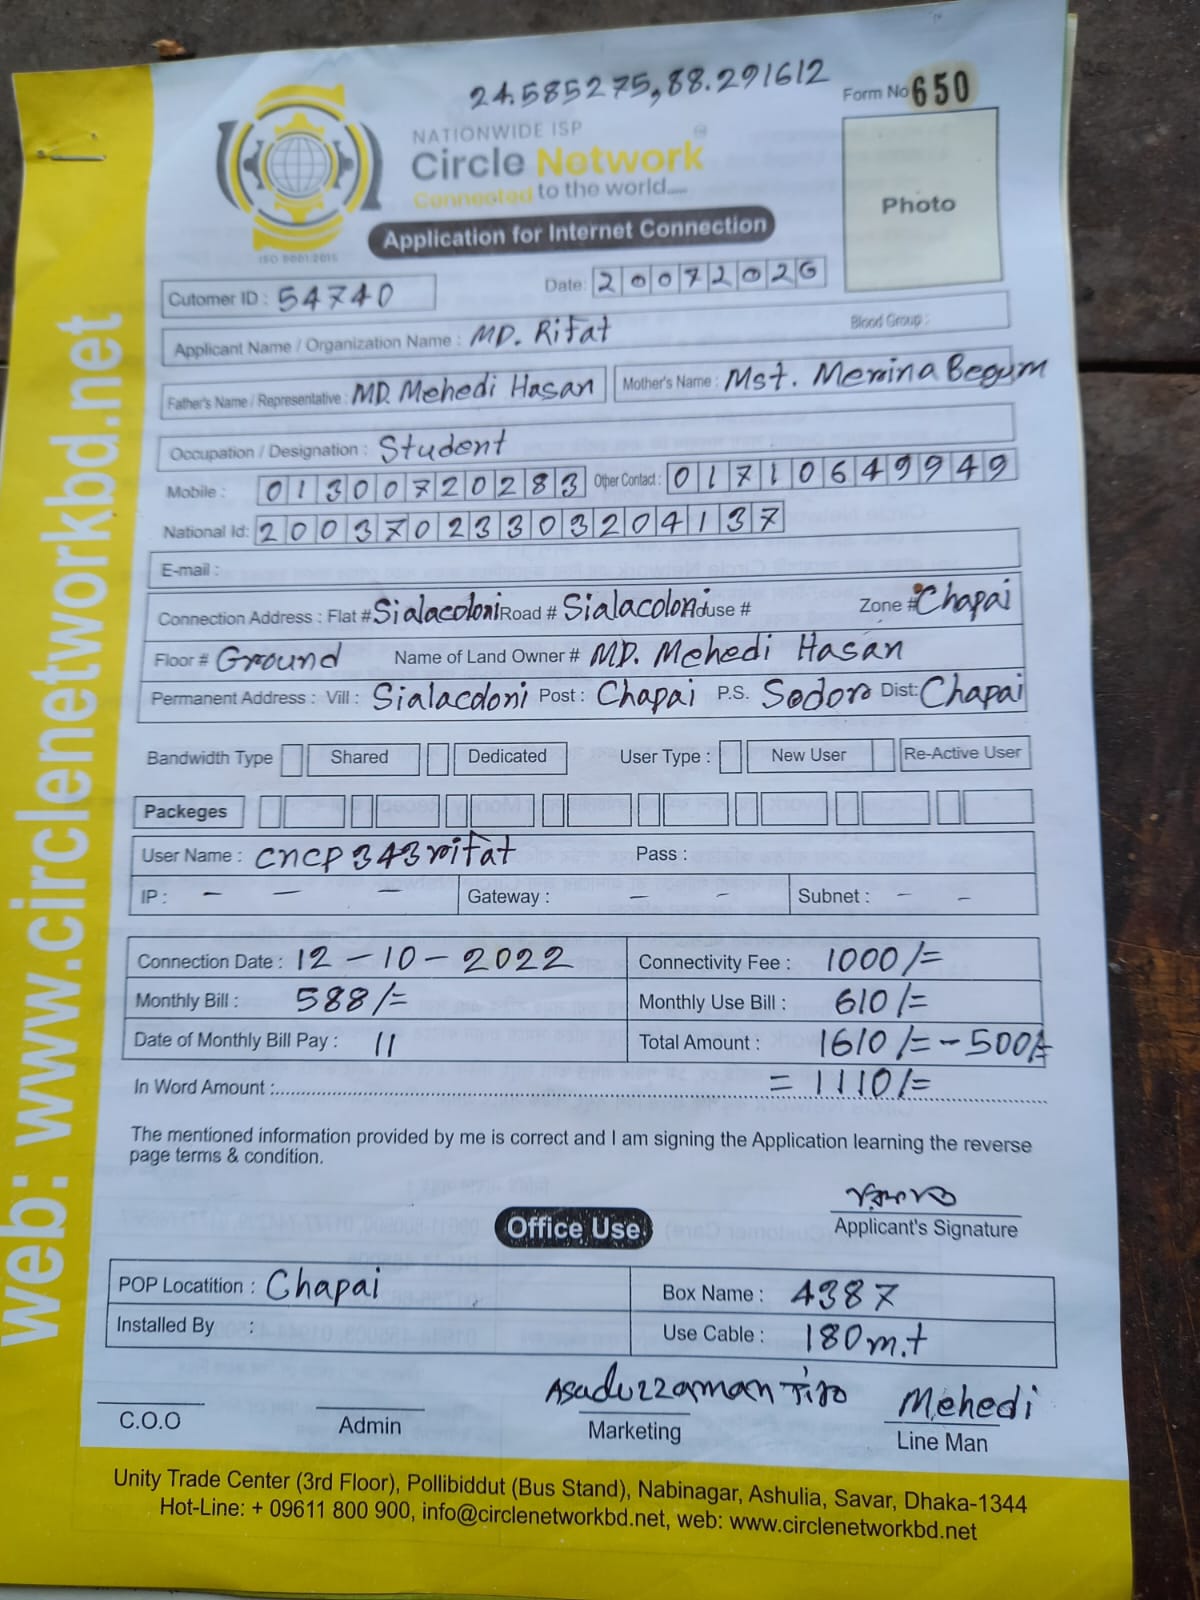 24.585275,88.291612
Form No 650
NATIONWIDE ISP
Circle Network
Connected to the world.....
Photo
Application for Internet Connection
ISO 9001:2015
Cutomer ID : 54740
Date: 20072026
Applicant Name / Organization Name : MD. Rifat
Blood Group :
Father's Name / Representative : MD. Mehedi Hasan
Mother's Name : Mst. Merina Begum
Occupation / Designation : Student
Mobile : 01300720283 Other Contact : 01710649949
National Id: 20037023303204137
E-mail :
Connection Address : Flat # Sialacoloni Road # Sialacoloni House # Zone # Chapai
Floor # Ground Name of Land Owner # MD. Mehedi Hasan
Permanent Address : Vill : Sialacoloni Post : Chapai P.S. Sodor Dist: Chapai
Bandwidth Type Shared Dedicated User Type : New User Re-Active User
Packeges
User Name : cncp343rifat Pass :
IP : – – – Gateway : – – Subnet : – –
Connection Date : 12-10-2022 Connectivity Fee : 1000/=
Monthly Bill : 588/= Monthly Use Bill : 610/=
Date of Monthly Bill Pay : 11 Total Amount : 1610/= - 500/=
In Word Amount :.......... = 1110/=
The mentioned information provided by me is correct and I am signing the Application learning the reverse
page terms & condition.
Applicant's Signature
Office Use.
POP Locatition : Chapai Box Name : 4387
Installed By : Use Cable : 180m.t
Asaduzzaman Mehedi
C.O.O Admin Marketing Line Man
Unity Trade Center (3rd Floor), Pollibiddut (Bus Stand), Nabinagar, Ashulia, Savar, Dhaka-1344
Hot-Line: + 09611 800 900, info@circlenetworkbd.net, web: www.circlenetworkbd.net
web: www.circlenetworkbd.net